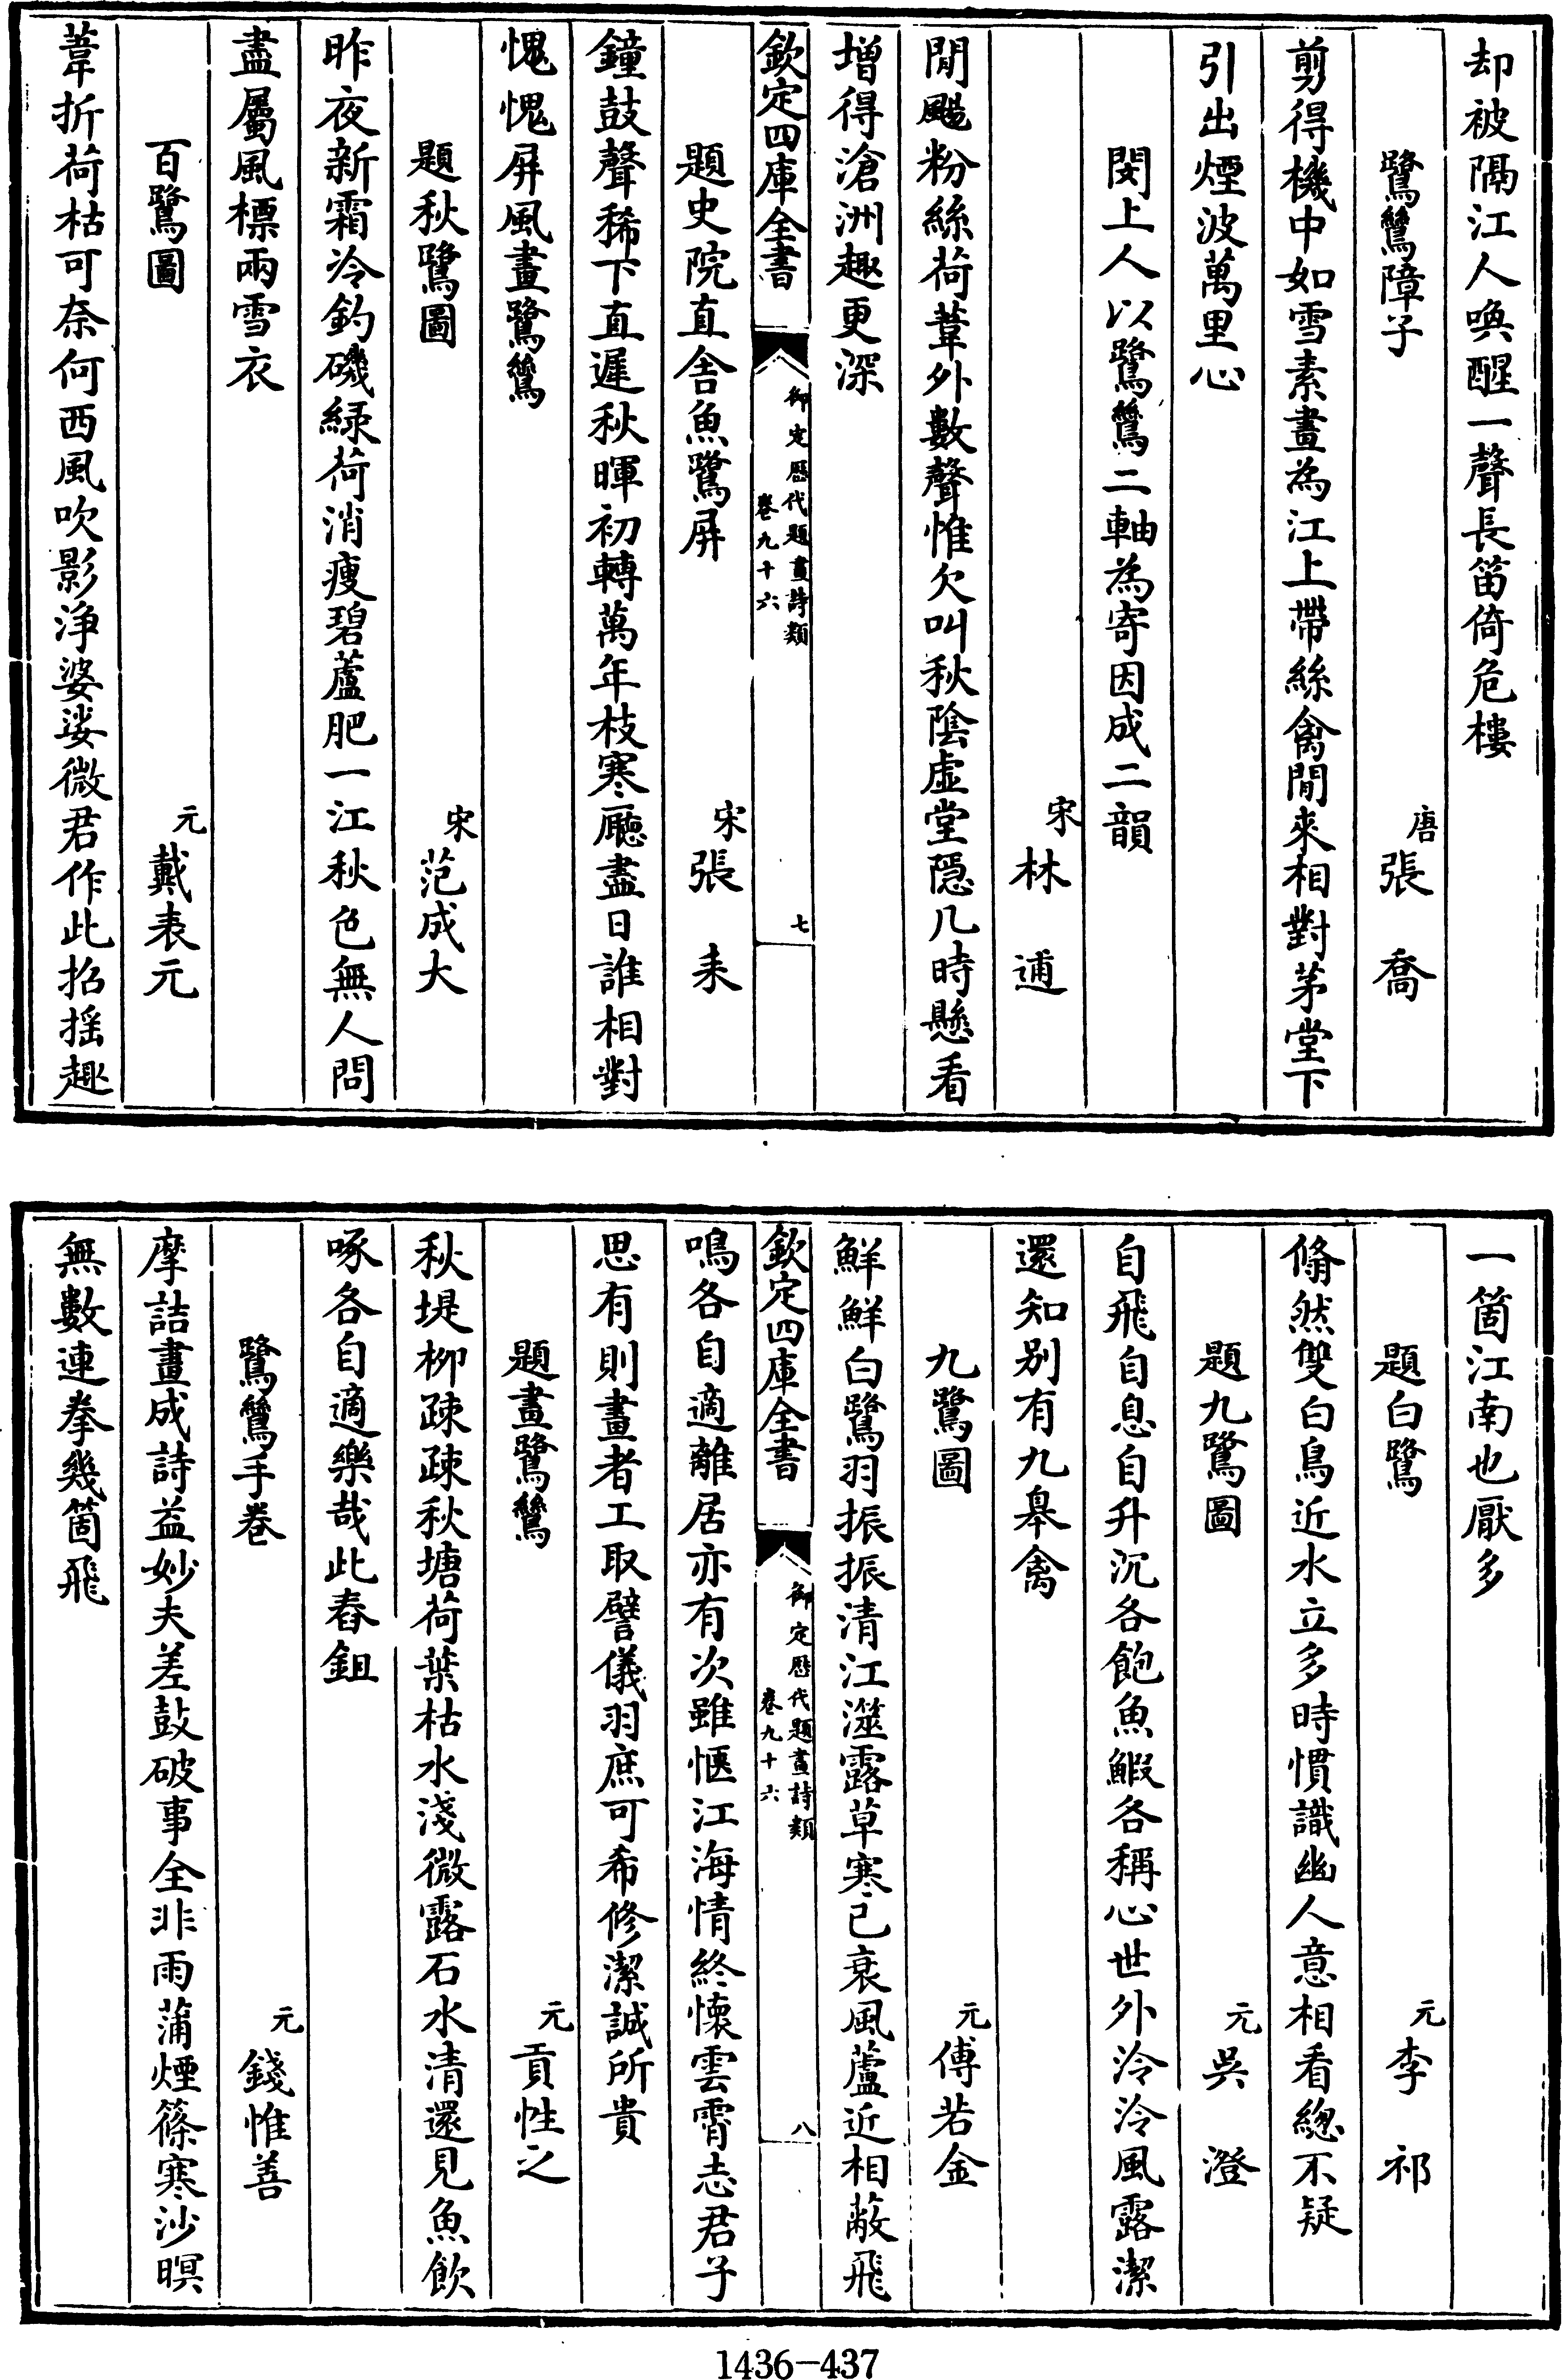 却被隔江人喚醒一聲長笛倚危樓
鷺鷥障子
唐張喬
剪得機中如雪素畫為江上帶絲禽閒來相對茅堂下
引出煙波萬里心
閔上人以鷺鷥二軸為寄因成二韻
宋林逋
閒颺粉絲荷葦外數聲惟欠叫秋陰虚堂隠几時懸看
增得滄洲趣更深
欽定四庫全書
御定歴代題畫詩類
卷九十六
七
題史院直舍魚鷺屏
宋張耒
鐘鼓聲稀下直遲秋暉初轉萬年枝寒廰盡日誰相對
愧愧屏風畫鷺鷥
題秋鷺圖
宋范成大
昨夜新霜冷釣磯緑荷消瘦碧蘆肥一江秋色無人問
盡屬風標兩雪衣
百鷺圖
元戴表元
葦折荷枯可奈何西風吹影浄婆娑微君作此招摇趣
一箇江南也厭多
題白鷺
元李祁
翛然雙白鳥近水立多時慣識幽人意相看總不疑
題九鷺圖
元吳澄
自飛自息自升沉各飽魚鰕各稱心世外泠泠風露潔
還知別有九臯禽
九鷺圖
元傅若金
鮮鮮白鷺羽振振清江澨露草寒已衰風蘆近相蔽飛
欽定四庫全書
御定歴代題畫詩類
卷九十六
八
鳴各自適離居亦有次雖愜江海情終懷雲霄志君子
思有則畫者工取譬儀羽庶可希修潔誠所貴
題畫鷺鷥
元貢性之
秋堤柳疎疎秋塘荷葉枯水淺微露石水清還見魚飲
啄各自適樂哉此舂鉏
鷺鷥手卷
元錢惟善
摩詰畫成詩益妙夫差鼓破事全非雨蒲煙篠寒沙暝
無數連拳幾箇飛
1436-437